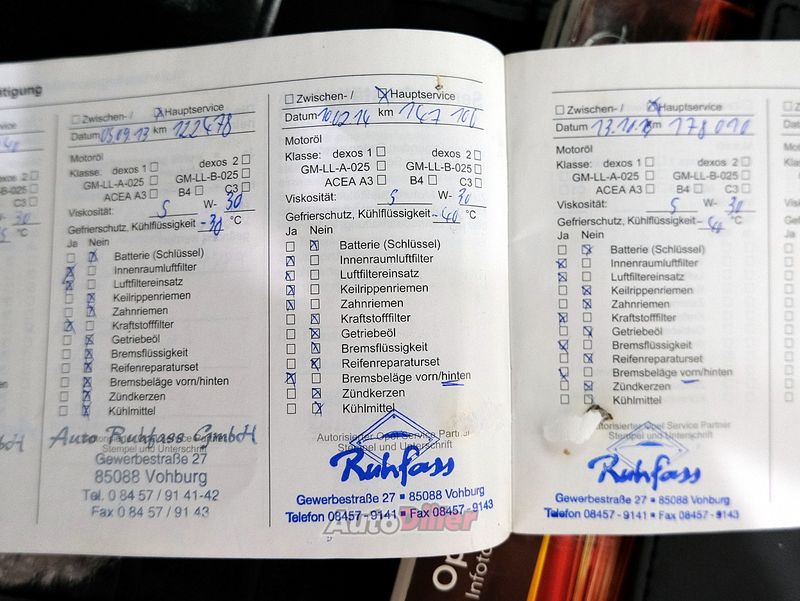 tigung
Zwischen- / Hauptservice
Datum 05.09.13 km 122478
Motoröl
Klasse: dexos 1 dexos 2
GM-LL-A-025 GM-LL-B-025
ACEA A3 B4 C3
Viskosität: 5 W- 30
Gefrierschutz, Kühlflüssigkeit -38 °C
Ja Nein
Batterie (Schlüssel)
Innenraumluftfilter
Luftfiltereinsatz
Keilrippenriemen
Zahnriemen
Kraftstofffilter
Getriebeöl
Bremsflüssigkeit
Reifenreparaturset
Bremsbeläge vorn/hinten
Zündkerzen
Kühlmittel
Auto Ruhfass GmbH
Stempel und Unterschrift
Gewerbestraße 27
85088 Vohburg
Tel. 0 84 57 / 91 41-42
Fax 0 84 57 / 91 43
Zwischen- / Hauptservice
Datum 10.02.14 km 147 100
Motoröl
Klasse: dexos 1 dexos 2
GM-LL-A-025 GM-LL-B-025
ACEA A3 B4 C3
Viskosität: 5 W- 30
Gefrierschutz, Kühlflüssigkeit -40 °C
Ja Nein
Batterie (Schlüssel)
Innenraumluftfilter
Luftfiltereinsatz
Keilrippenriemen
Zahnriemen
Kraftstofffilter
Getriebeöl
Bremsflüssigkeit
Reifenreparaturset
Bremsbeläge vorn/hinten
Zündkerzen
Kühlmittel
Autorisierter Opel Service Partner
Stempel und Unterschrift
Ruhfass
Gewerbestraße 27 ▪ 85088 Vohburg
Telefon 08457 - 9141 ▪ Fax 08457 - 9143
AutoDiler
Zwischen- / Hauptservice
Datum km 178 010
Motoröl
Klasse: dexos 1 dexos 2
GM-LL-A-025 GM-LL-B-025
ACEA A3 B4 C3
Viskosität: 5 W- 30
Gefrierschutz, Kühlflüssigkeit °C
Ja Nein
Batterie (Schlüssel)
Innenraumluftfilter
Luftfiltereinsatz
Keilrippenriemen
Zahnriemen
Kraftstofffilter
Getriebeöl
Bremsflüssigkeit
Reifenreparaturset
Bremsbeläge vorn/hinten
Zündkerzen
Kühlmittel
Autorisierter Opel Service Partner
Stempel und Unterschrift
Ruhfass
Gewerbestraße 27 ▪ 85088 Vohburg
Telefon 08457 - 9141 ▪ Fax 08457 - 9143
Op
Infot